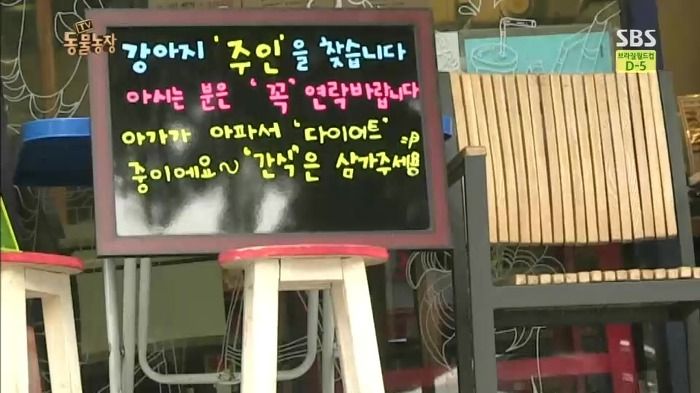 TV
동물농장
SBS
브라질월드컵
D-5
강아지 '주인'을 찾습니다
아시는 분은 '꼭' 연락바랍니다
아가가 아파서 '다이어트'
중이에요~ "간식"은 삼가주세용